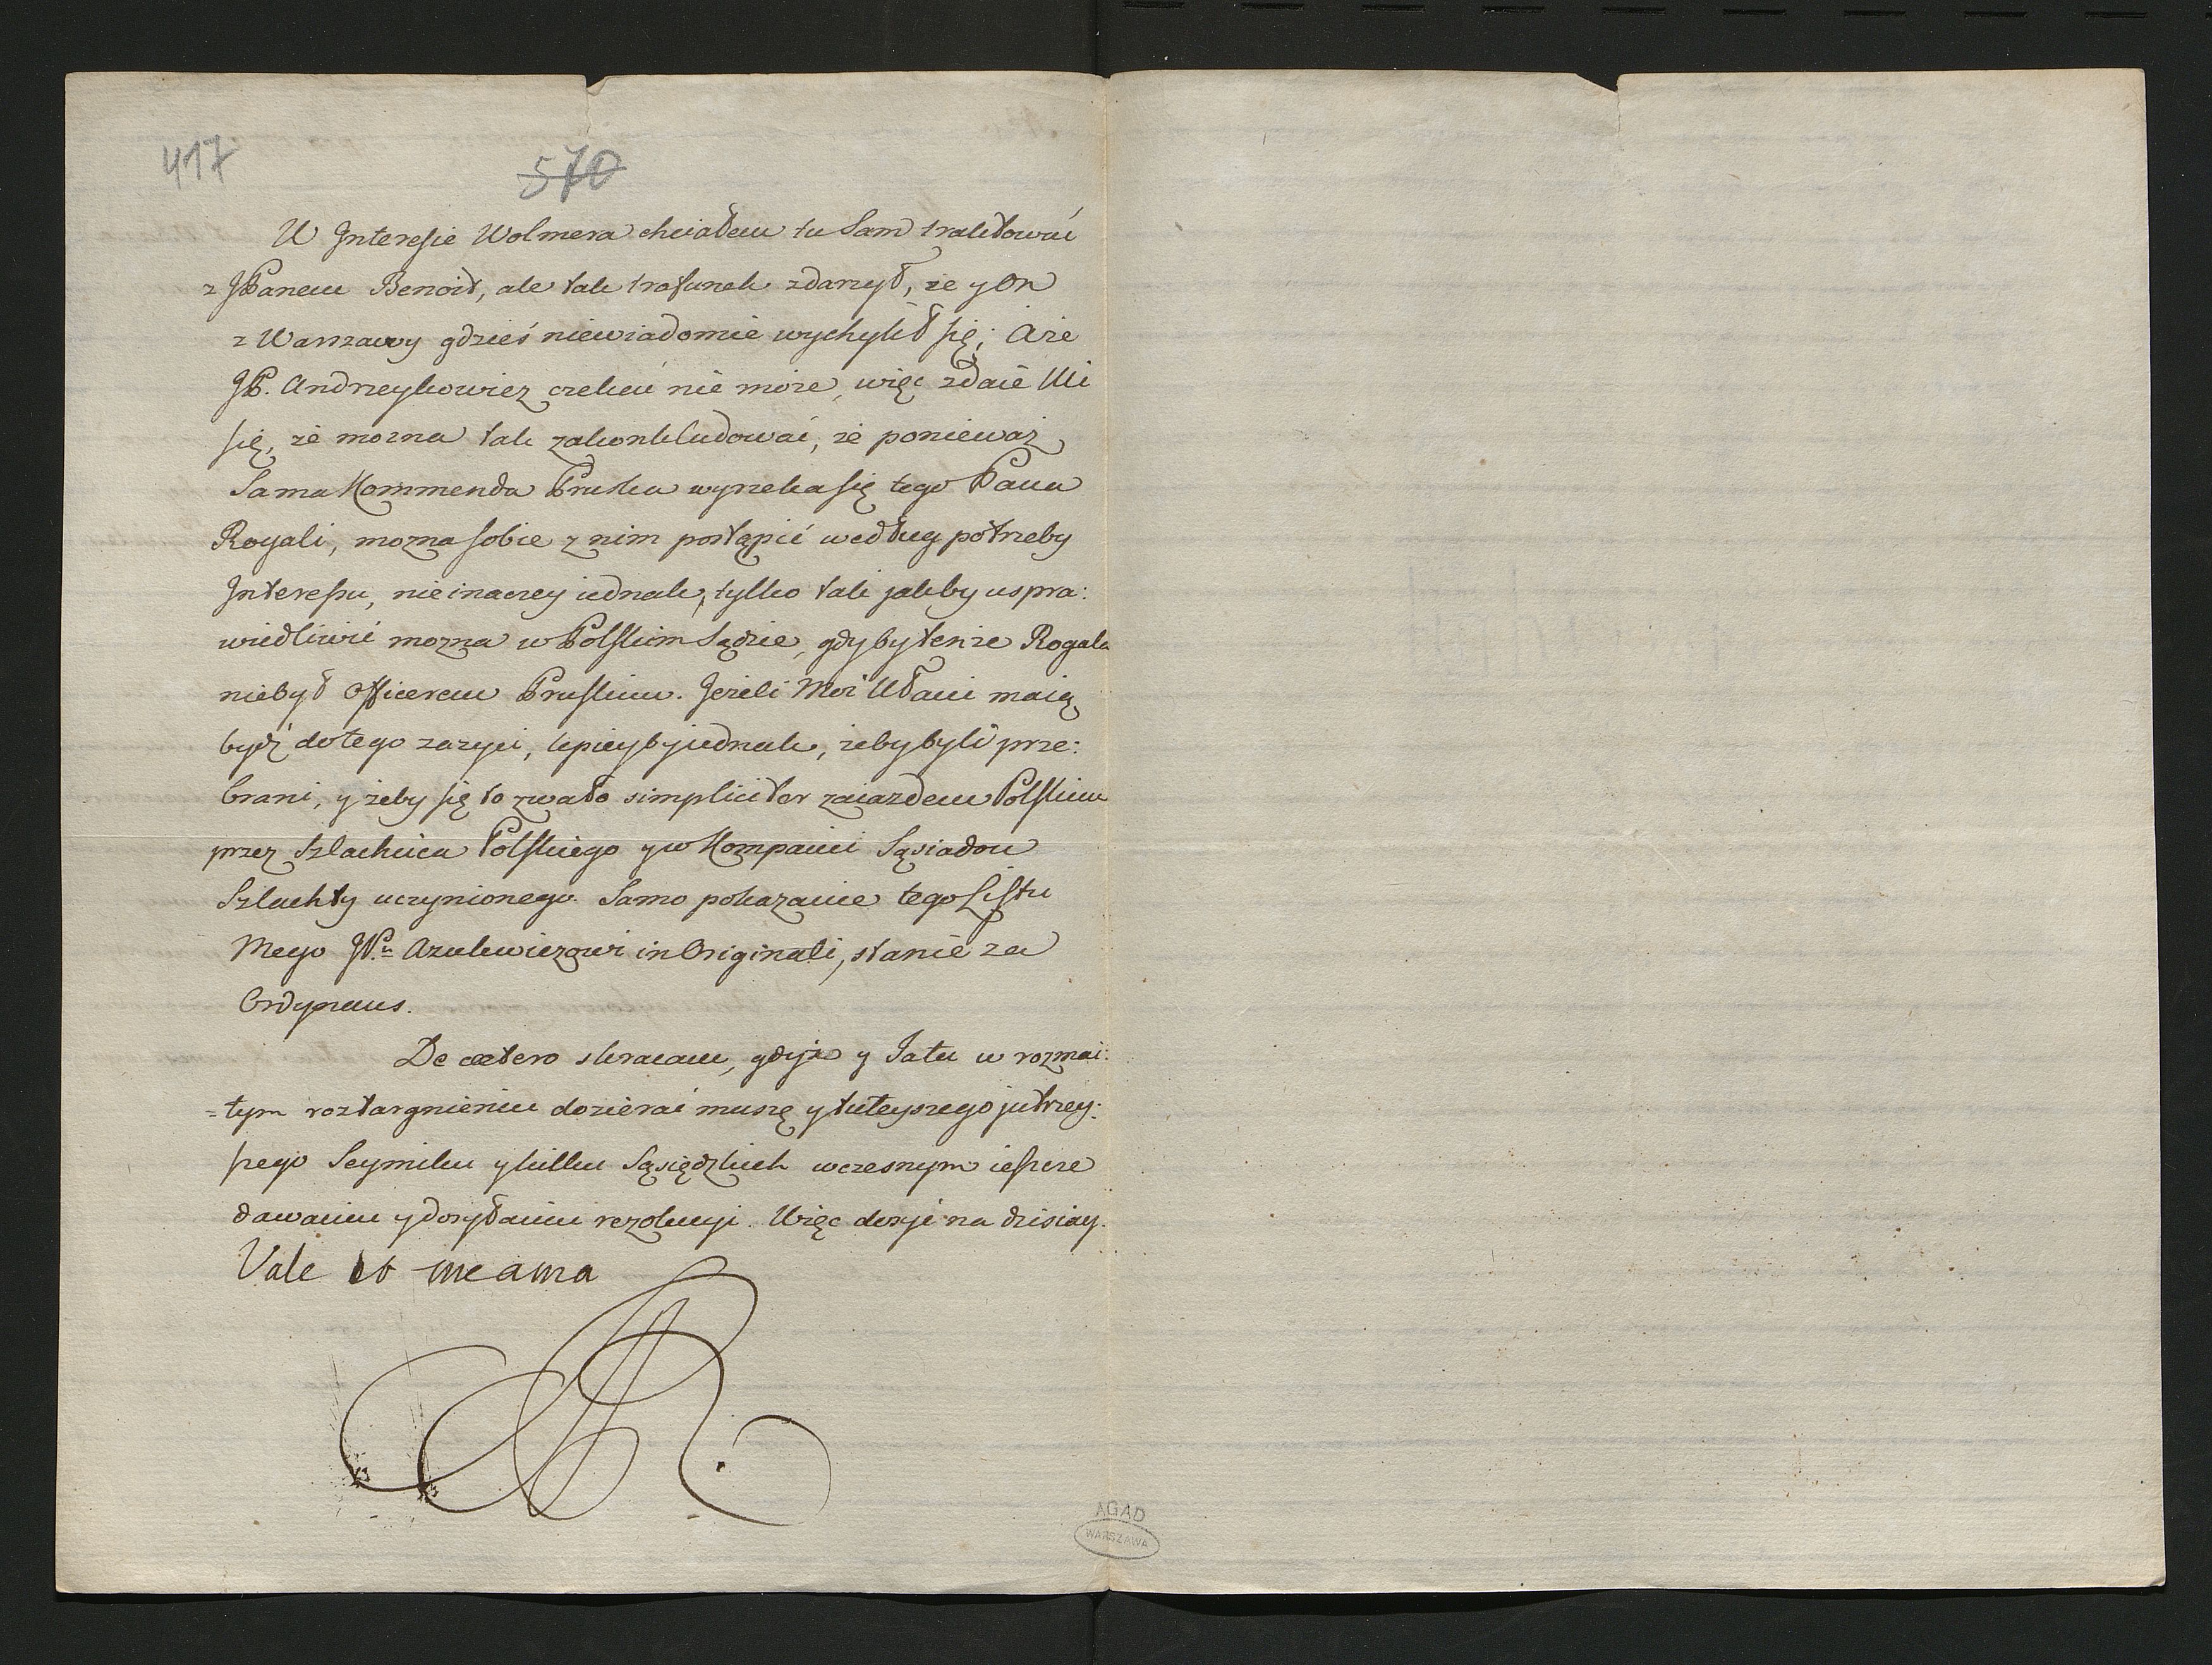 417
570
W Interesie Wolmera chciałem tu Sam traktować
z JPanem Benoit, ale tak trafunek zdarzył, że y On
z Warszawy gdzieś niewiadomie wychylił się; Aże
JP. Andrzeykowicz czekać nie może, więc zdaie Mi
się, że mozna tak zakonkludować, że ponieważ
Sama Kommenda Pruska wyrzeka się tego Pana
Rogali, mozna sobie z nim postąpić według potrzeby
Interesu, nieinaczey iednak, tylko tak jakby uspra:
wiedliwić mozna w Polskim Sądzie, gdyby tenże Rogala
niebył Officerem Pruskim. Jeżeli Moi Ułani maią
bydź do tego zażyci, lepieyby iednak, żeby byli prze:
brani, y żeby się to zwało simpliciter zaiazdem Polskim
przez Szlachcica Polskiego y w Kompanii Sąsiadow
Szlachty uczynionego. Samo pokazanie tego Listu
Mego JPu Azulewiczowi in Originali, stanie za
Ordynans.
De caetero skracam, gdyż y Ja tu w rozmai:
=tym roztargnieniu dozierać muszę y tuteyszego jutrzey:
szego Seymiku y kilku Sąsiedzkich wczesnym ieszcze
dawaniu y dosyłaniu rezolucyi. Więc dosyć na dzisiay.
Vale et me ama
SAR.
AGAD
WARSZAWA